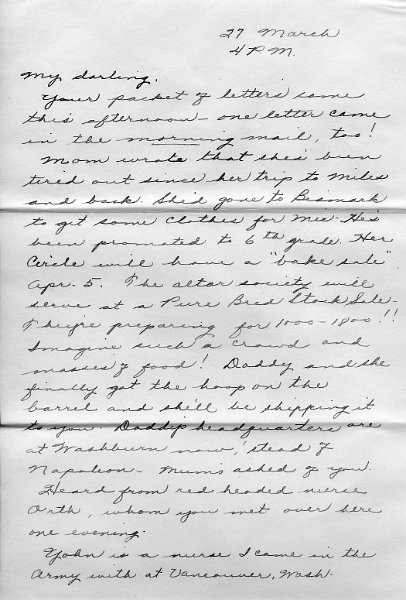 27 March
4 P.M.
My darling,
Your packet of letters came
this afternoon - one letter came
in the morning mail, too!
Mom wrote that she's been
tired out since her trip to Miles
and back. She'd gone to Bismark
to get some clothes for Mee. He's
been promoted to 6th grade. Her
Circle will have a "bake sale"
Apr. 5. The altar society will
serve at a Pure Bred Stock Sale -
They're preparing for 1000-1800!!
Imagine such a crowd and
masses of food! Daddy and she
finally got the hoop on the
barrel and she'll be shipping it
to you. Daddy's headquarters are
at Washburn now, 'stead of
Napoleon - Mum's asked of you.
Heard from red headed nurse
Orth, whom you met over here
one evening.
Yohn is a nurse I came in the
Army with at Vancouver, Wash.